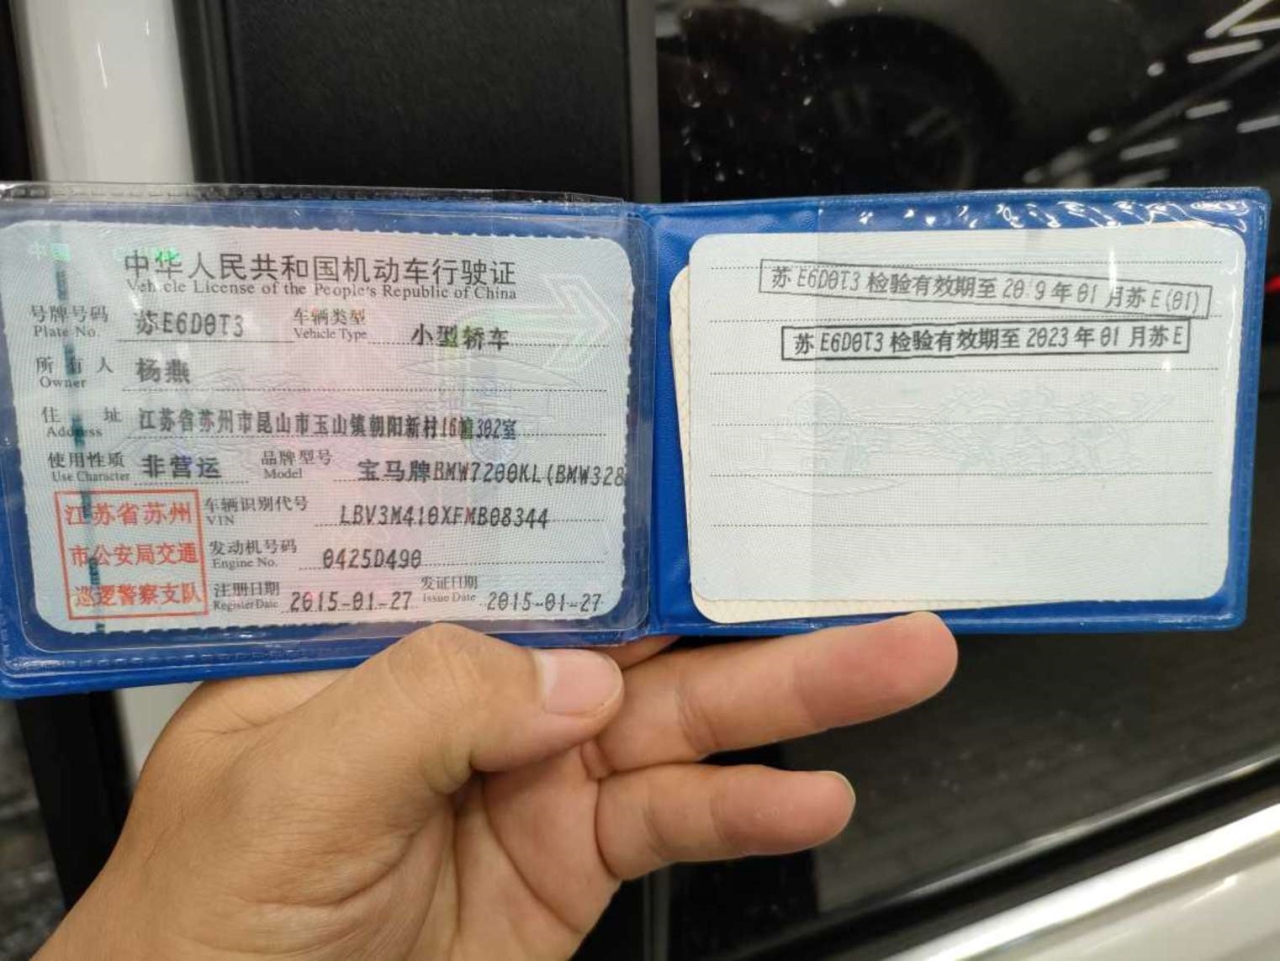 中国 CHINA
中华人民共和国机动车行驶证
Vehicle License of the People's Republic of China
号牌号码 苏E6D0T3 车辆类型 小型轿车
Plate No. Vehicle Type
所有人 杨燕
Owner
住址 江苏省苏州市昆山市玉山镇朝阳新村16幢302室
Address
使用性质 非营运 品牌型号 宝马牌BMW7200KL(BMW328
Use Character Model
江苏省苏州
市公安局交通
巡逻警察支队
车辆识别代号 LBV3M410XFMB08344
VIN
发动机号码 0425D490
Engine No.
注册日期 2015-01-27 发证日期 2015-01-27
Register Date Issue Date
苏E6D0T3检验有效期至2019年01月苏E(01)
苏E6D0T3检验有效期至2023年01月苏E